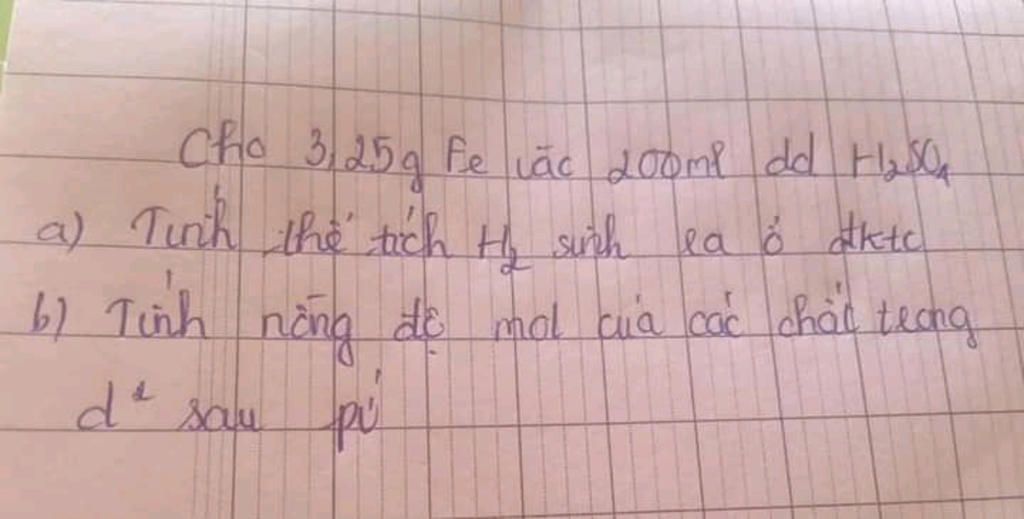 Cho 3,25g Fe vào 200ml dd H₂SO₄
a) Tính thể tích H₂ sinh ra ở đktc
b) Tính nồng độ mol của các chất trong
d² sau pứ